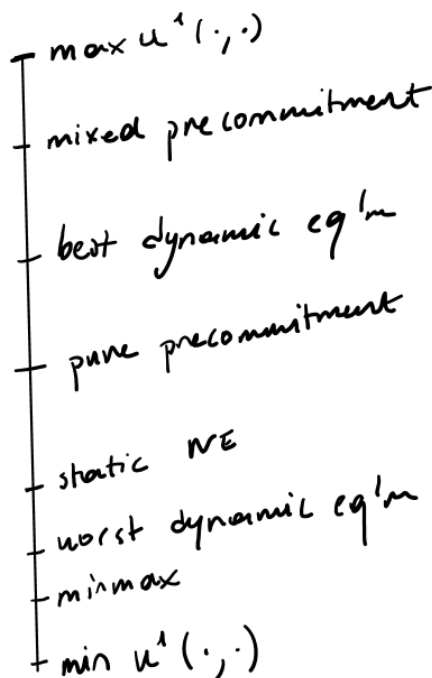 max u¹(·,·)
mixed precommitment
best dynamic eq'm
pure precommitment
static NE
worst dynamic eq'm
minmax
min u¹(·,·)